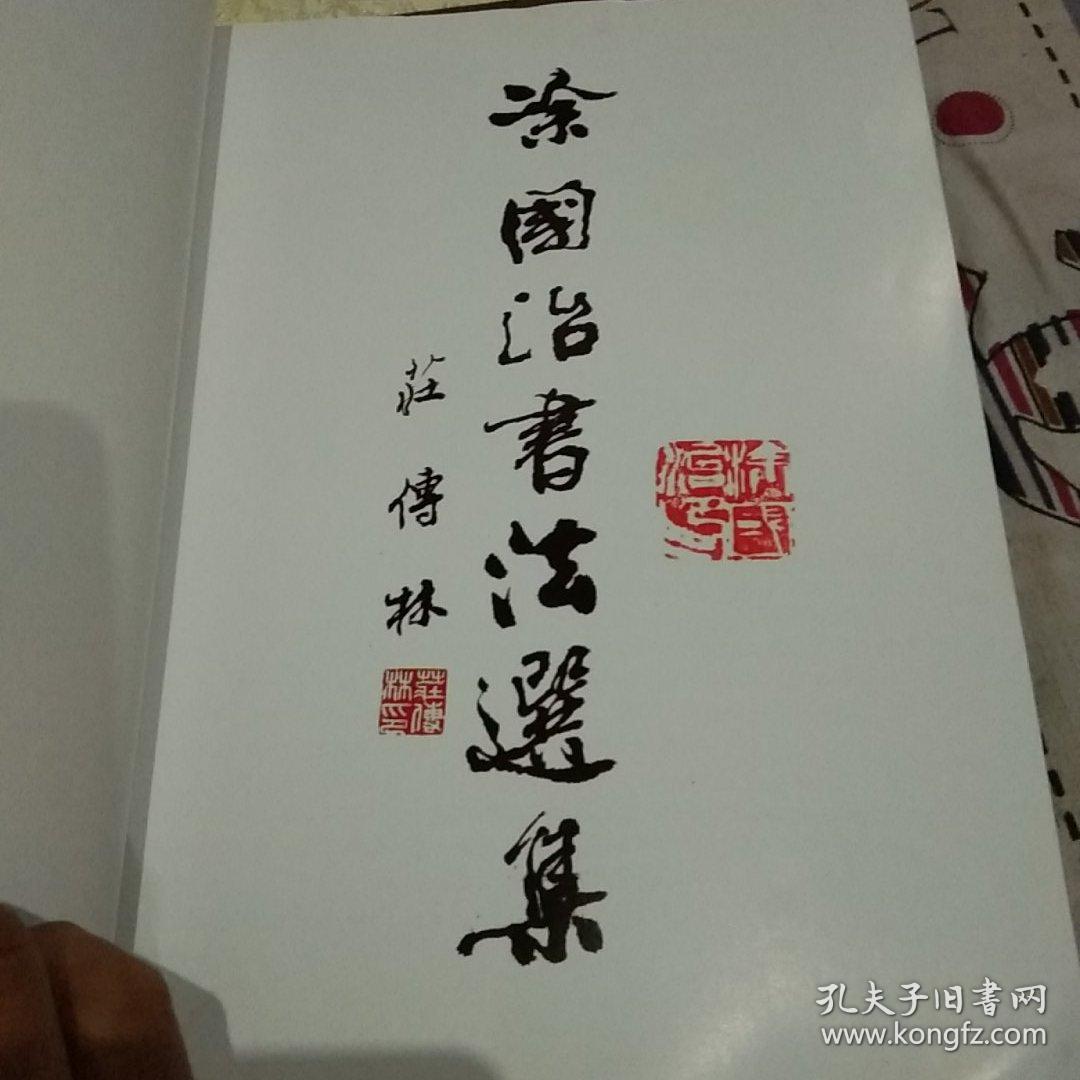 涂國治書法選集
莊傳林
莊傳林印
孔夫子旧書网
www.kongfz.com